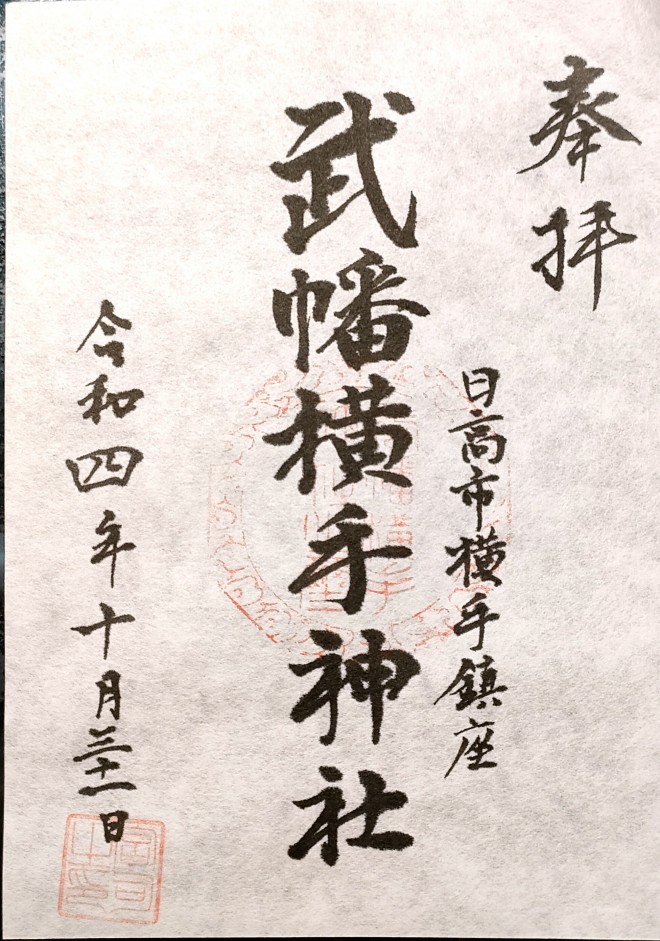 奉拝
日高市横手鎮座
武幡横手神社
令和四年十月三十一日